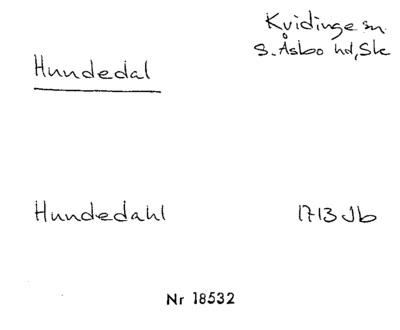 Kvidinge sn.
S. Åsbo hd, Sk
Hundedal
Hundedahl
1713 Jb
Nr 18532